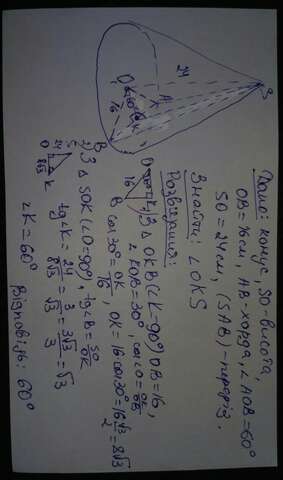 Дано: конус, SO-висота,
OB=16см, AB-хорда, ∠AOB=60°
SO=24см, (SAB)-переріз.
Знайти: ∠OKS
Розв'язання:
1) З △ OKB (∠K=90°) OB=16,
∠KOB=30°, cos∠O=OK/OB
cos30°=OK/16, OK=16cos30°=16√3/2=8√3
2) З △ SOK (∠O=90°, tg∠K=SO/OK
tg∠K=24/8√3=3/√3=3√3/3=√3
∠K=60°
Відповідь: 60°
S
24
O
A
K
16
B
O
16
K
B
S
24
O
8√3
K